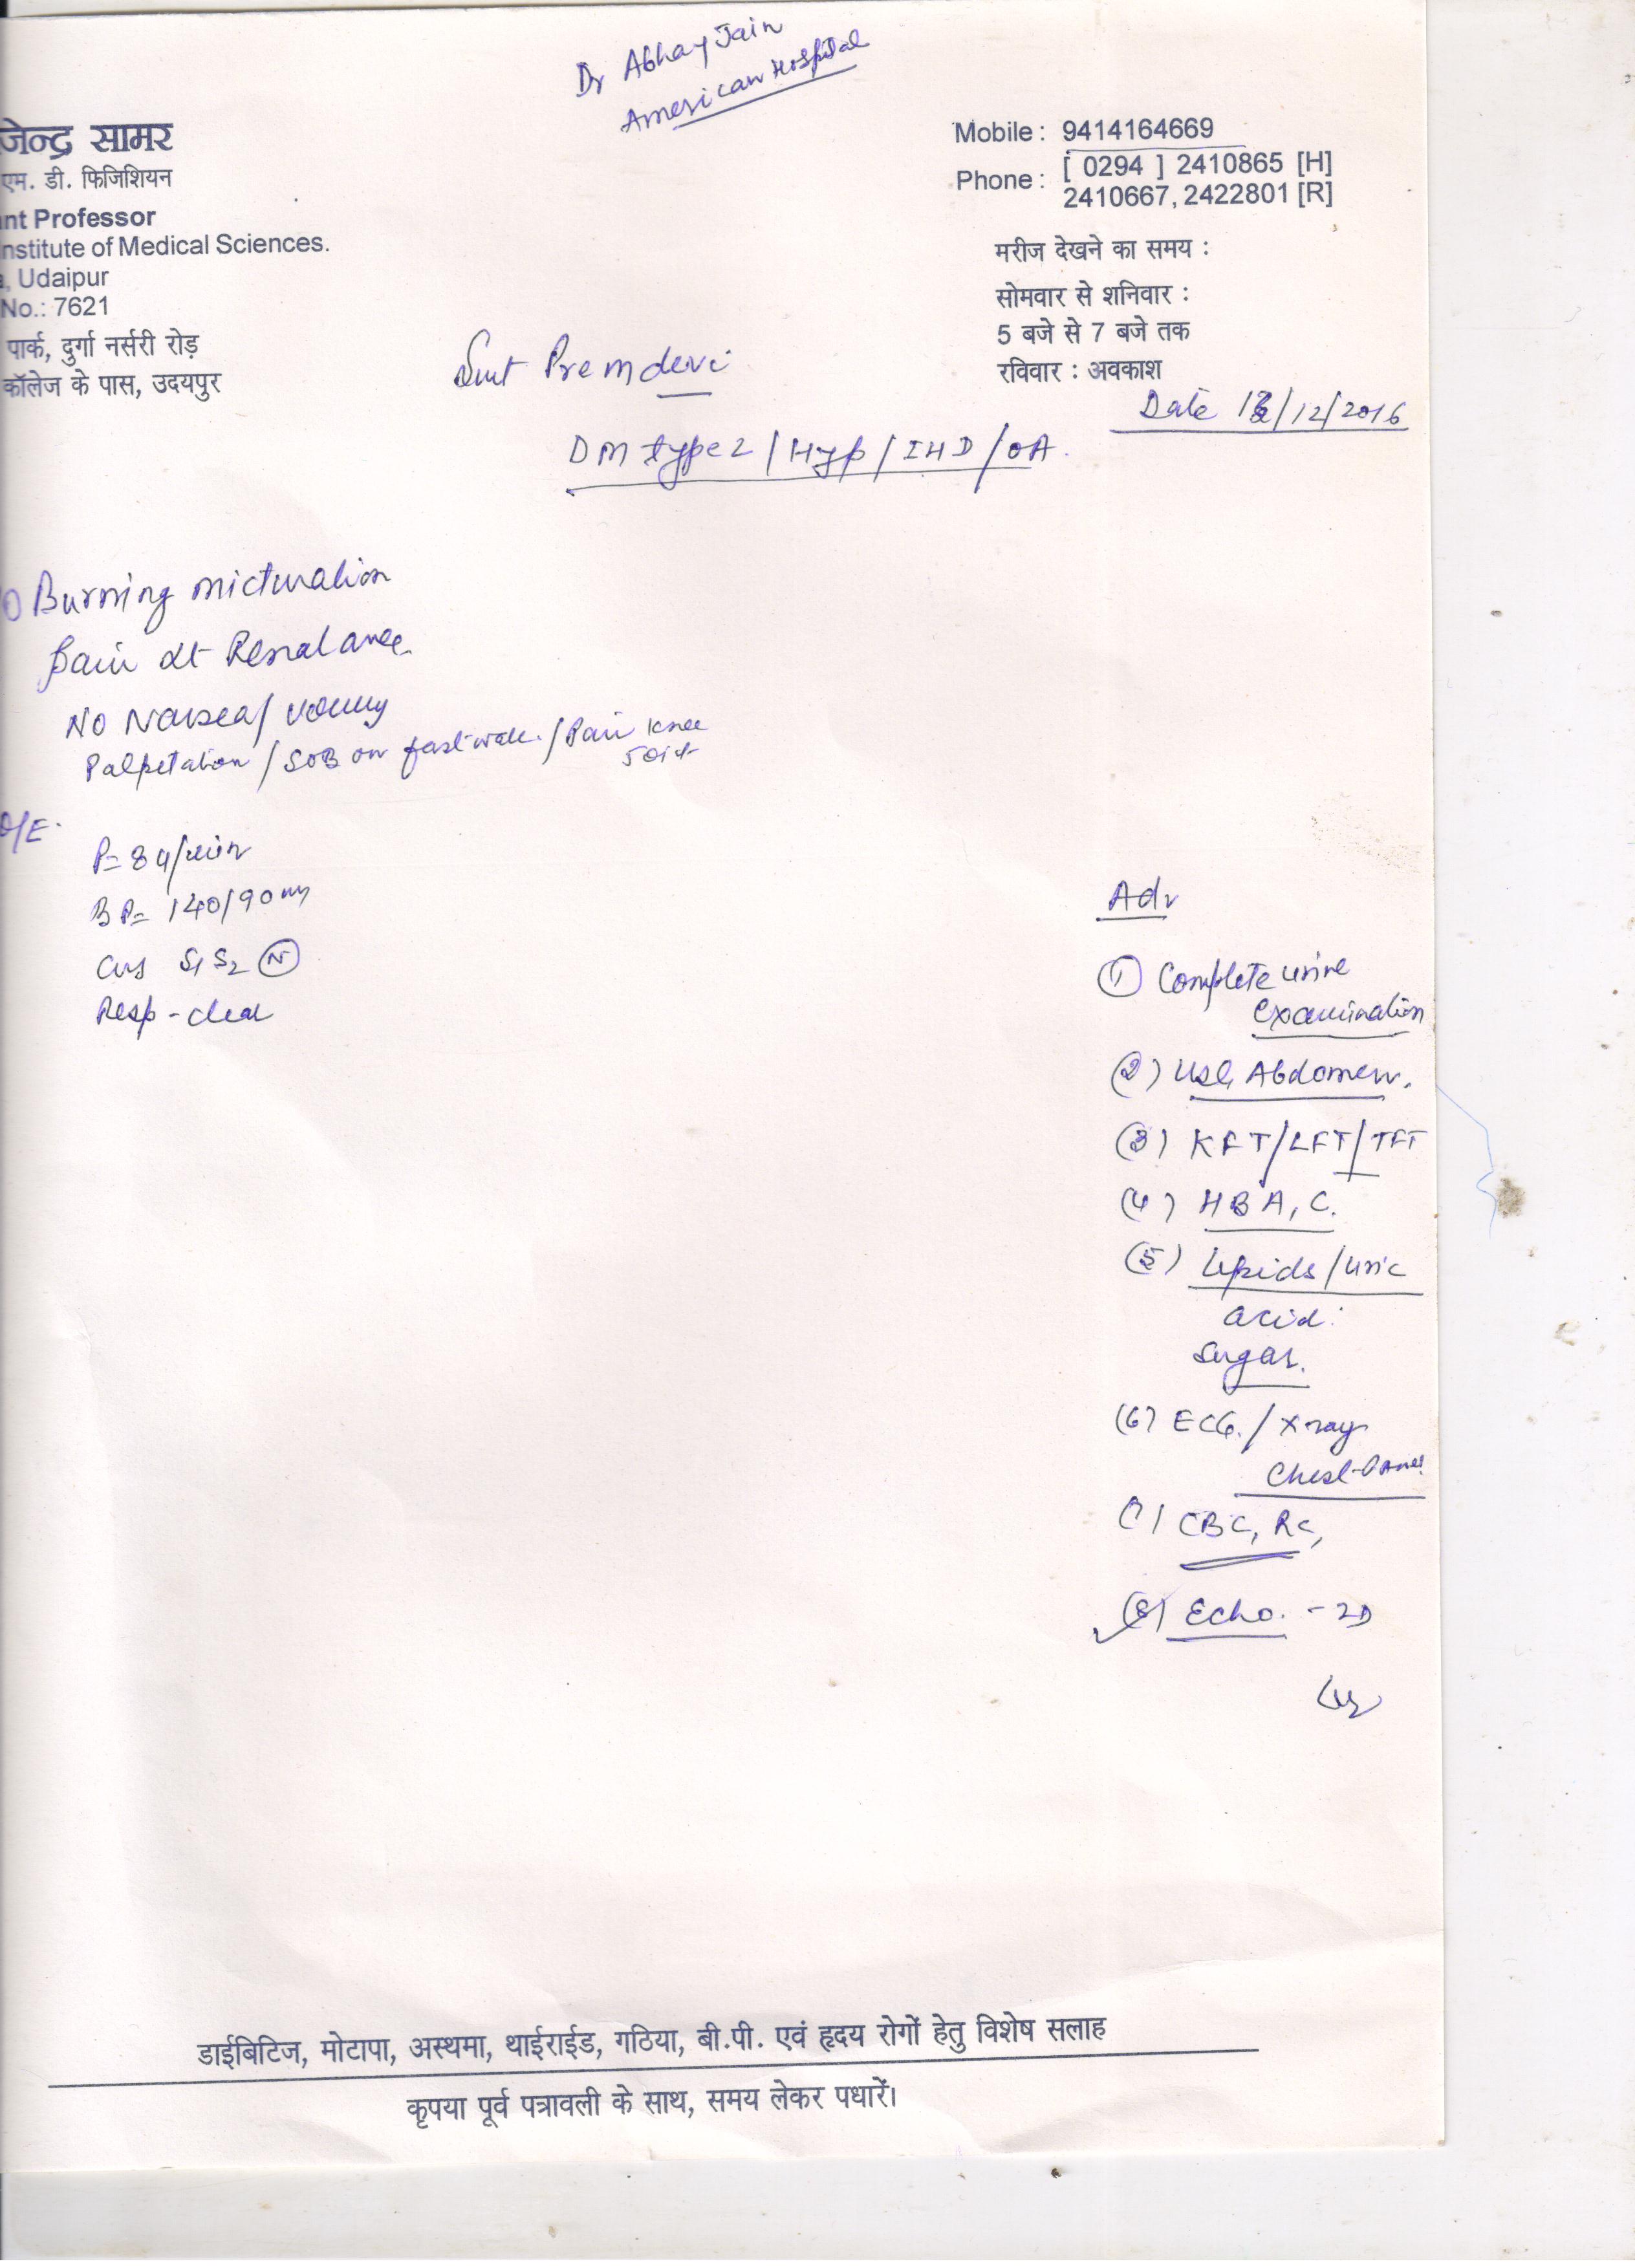 Dr Abhay Jain
American Hospital
जेन्द्र सामर
एम. डी. फिजिशियन
ant Professor
nstitute of Medical Sciences.
, Udaipur
No.: 7621
पार्क, दुर्गा नर्सरी रोड़
कॉलेज के पास, उदयपुर
Mobile : 9414164669
Phone : [ 0294 ] 2410865 [H]
2410667, 2422801 [R]
मरीज देखने का समय :
सोमवार से शनिवार :
5 बजे से 7 बजे तक
रविवार : अवकाश
Date /12/2016
Smt Premdevi
DM type 2 / Hyp / IHD / OA.
Burning micturation
pain Renal area
No Nausea/
Palpetation / SOB on fast walk. / Pain knee
Joint
O/E.
P= 84/min
BP= 140/90 mm
CVS S1 S2 N
Resp - clear
Adv
(1) Complete urine
examination
(2) USG Abdomen.
(3) KFT/LFT/TFT
(4) HBA1C.
(5) Lipids/uric
acid.
Sugar.
(6) ECG. / X ray
Chest-
(7) CBC,
(8) Echo. - 2D
डाईबिटिज, मोटापा, अस्थमा, थाईराईड, गठिया, बी.पी. एवं हृदय रोगों हेतु विशेष सलाह
कृपया पूर्व पत्रावली के साथ, समय लेकर पधारें।